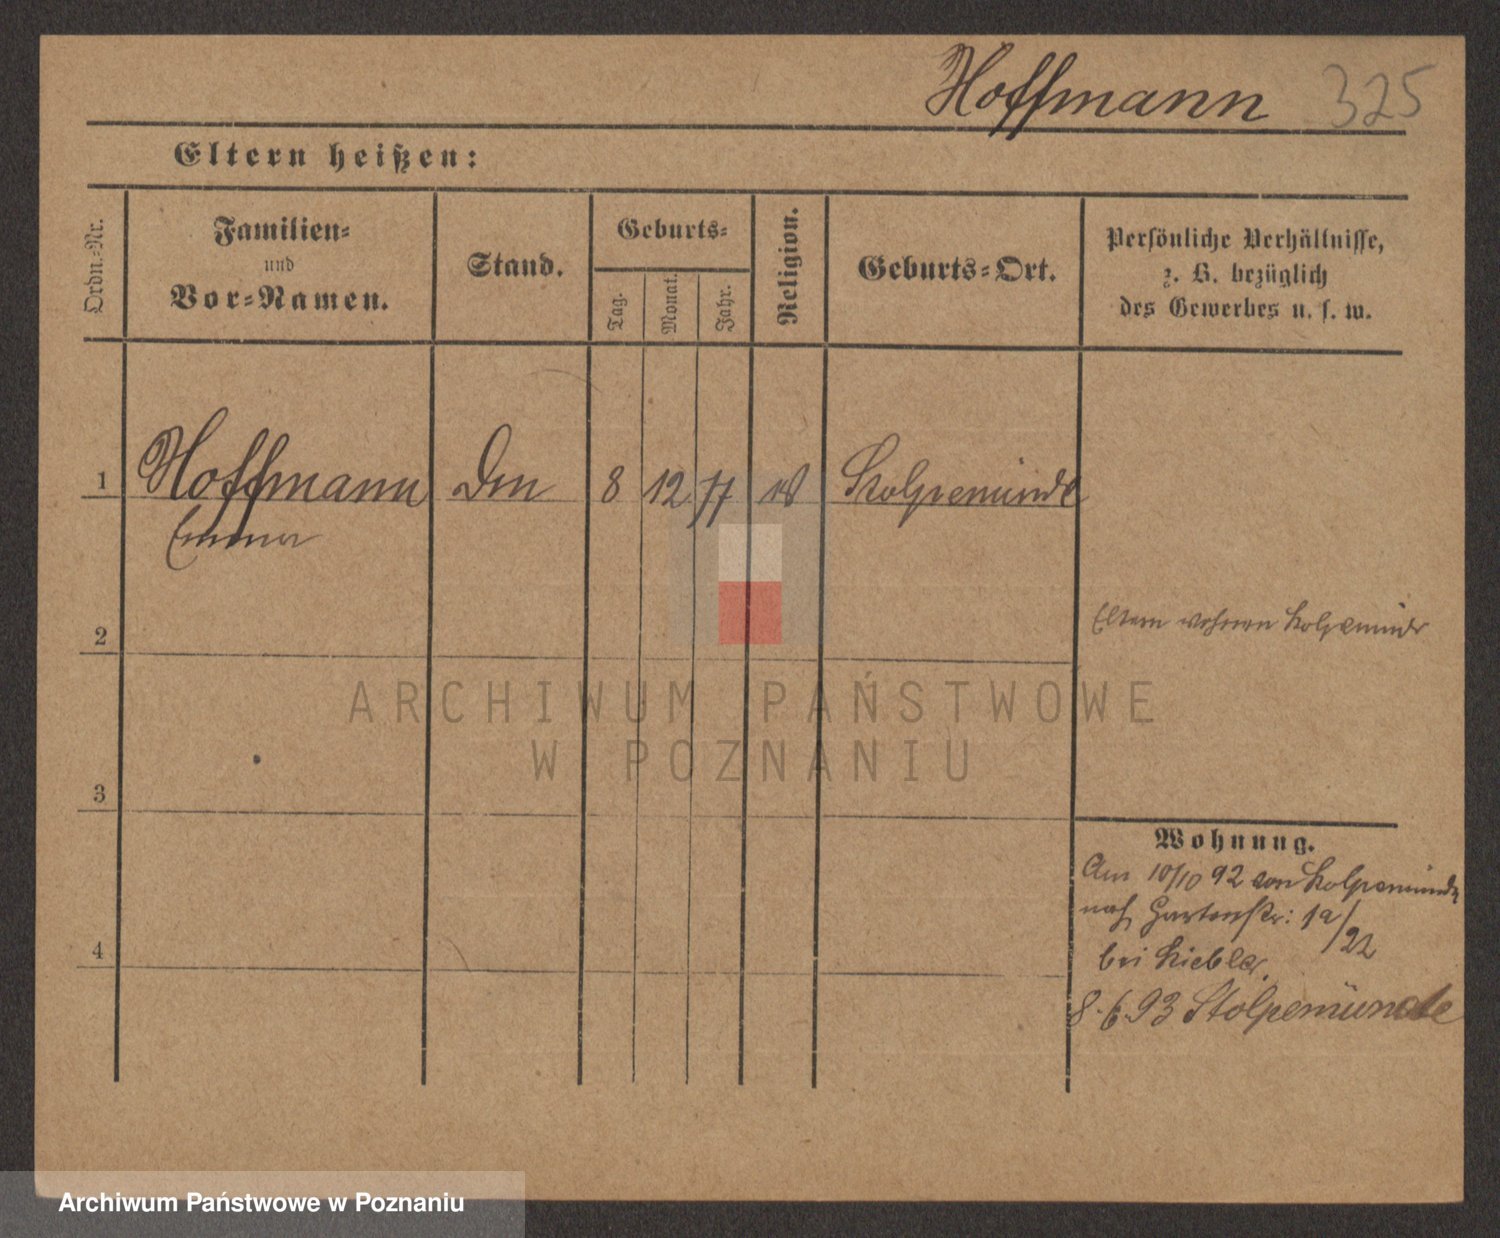 Hoffmann 325
Eltern heißen:
Ordn.-Nr.
Familien-
und
Vor-Namen.
Stand.
Geburts-
Tag.
Monat.
Jahr.
Religion.
Geburts-Ort.
Persönliche Verhältnisse,
z. B. bezüglich
des Gewerbes u. s. w.
1 Hoffmann 8 12 77 Stolpemünde
Emma
2
Eltern wohnen Stolpemünde
3
Wohnung.
Am 10/10 92 von Stolpemünde
nach Gartenstr: 19/
22
4
bei
8.6.93 Stolpemünde
ARCHIWUM PAŃSTWOWE
W POZNANIU
Archiwum Państwowe w Poznaniu